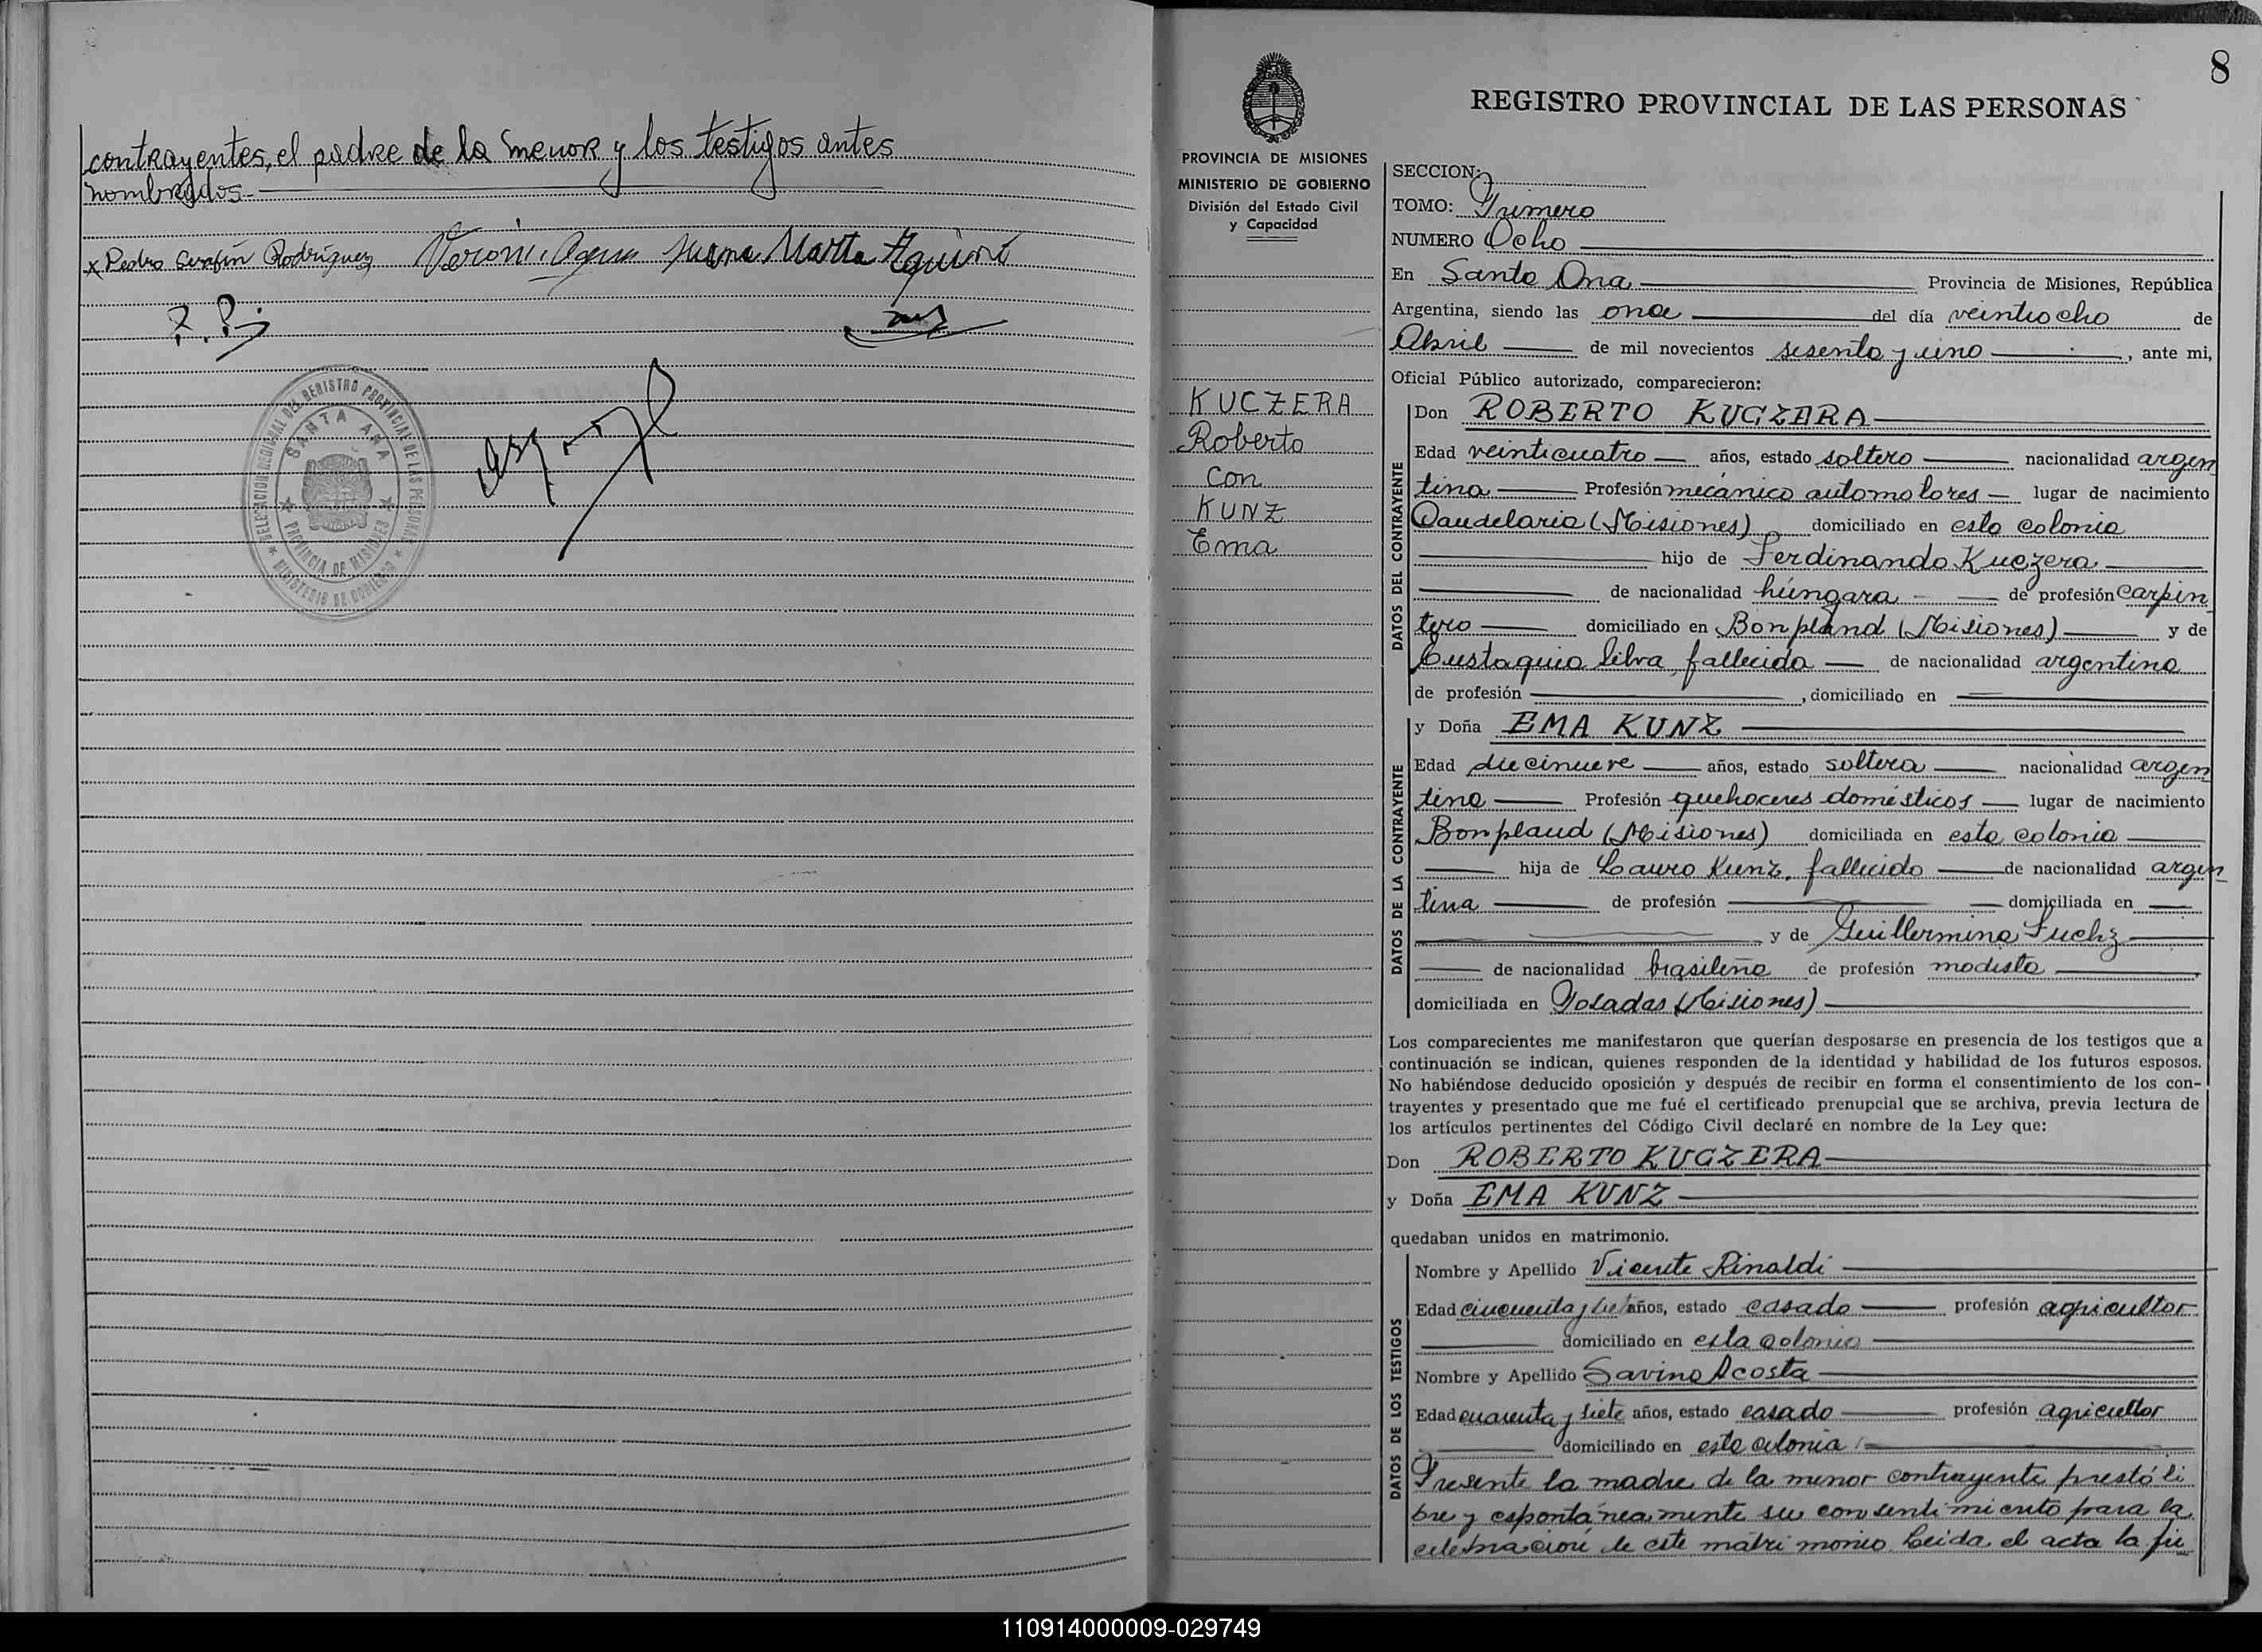 contrayentes, el padre de la menor y los testigos antes
nombrados.-
x Pedro Serafín Rodríguez Juana Marta Aguirre
DELEGACION REGIONAL DEL REGISTRO PROVINCIAL DE LAS PERSONAS
SANTA ANA
PROVINCIA DE MISIONES
MINISTERIO DE GOBIERNO
8
REGISTRO PROVINCIAL DE LAS PERSONAS
PROVINCIA DE MISIONES
MINISTERIO DE GOBIERNO
División del Estado Civil
y Capacidad
KUCZERA
Roberto
con
KUNZ
Ema
SECCION:
TOMO: Primero
NUMERO Ocho
En Santa Ana Provincia de Misiones, República
Argentina, siendo las once del día veintiocho de
Abril de mil novecientos sesenta y uno, ante mi,
Oficial Público autorizado, comparecieron:
DATOS DEL CONTRAYENTE
Don ROBERTO KUCZERA
Edad veinticuatro años, estado soltero nacionalidad argen
tina Profesión mecánico automotores lugar de nacimiento
Candelaria (Misiones) domiciliado en esta colonia
hijo de Ferdinando Kuczera
de nacionalidad húngara de profesión carpin
tero domiciliado en Bonpland (Misiones) y de
Eustaquia Silva, fallecida de nacionalidad argentina
de profesión , domiciliado en
DATOS DE LA CONTRAYENTE
y Doña EMA KUNZ
Edad diecinueve años, estado soltera nacionalidad argen
tina Profesión quehaceres domésticos lugar de nacimiento
Bonpland (Misiones) domiciliada en esta colonia
hija de Lauro Kunz, fallecido de nacionalidad argen
tina de profesión domiciliada en
y de Guillermina Fuchz
de nacionalidad brasileña de profesión modista
domiciliada en Posadas (Misiones)
Los comparecientes me manifestaron que querían desposarse en presencia de los testigos que a
continuación se indican, quienes responden de la identidad y habilidad de los futuros esposos.
No habiéndose deducido oposición y después de recibir en forma el consentimiento de los con-
trayentes y presentado que me fué el certificado prenupcial que se archiva, previa lectura de
los artículos pertinentes del Código Civil declaré en nombre de la Ley que:
Don ROBERTO KUCZERA
y Doña EMA KUNZ
quedaban unidos en matrimonio.
DATOS DE LOS TESTIGOS
Nombre y Apellido Vicente Rinaldi
Edad cincuenta y años, estado casado profesión agricultor
domiciliado en esta colonia
Nombre y Apellido Savino Acosta
Edad cuarenta y siete años, estado casado profesión agricultor
domiciliado en esta colonia
Presente la madre de la menor contrayente prestó li
bre y espontáneamente su consentimiento para la
celebración de este matrimonio. Leida el acta la fir
110914000009-029749